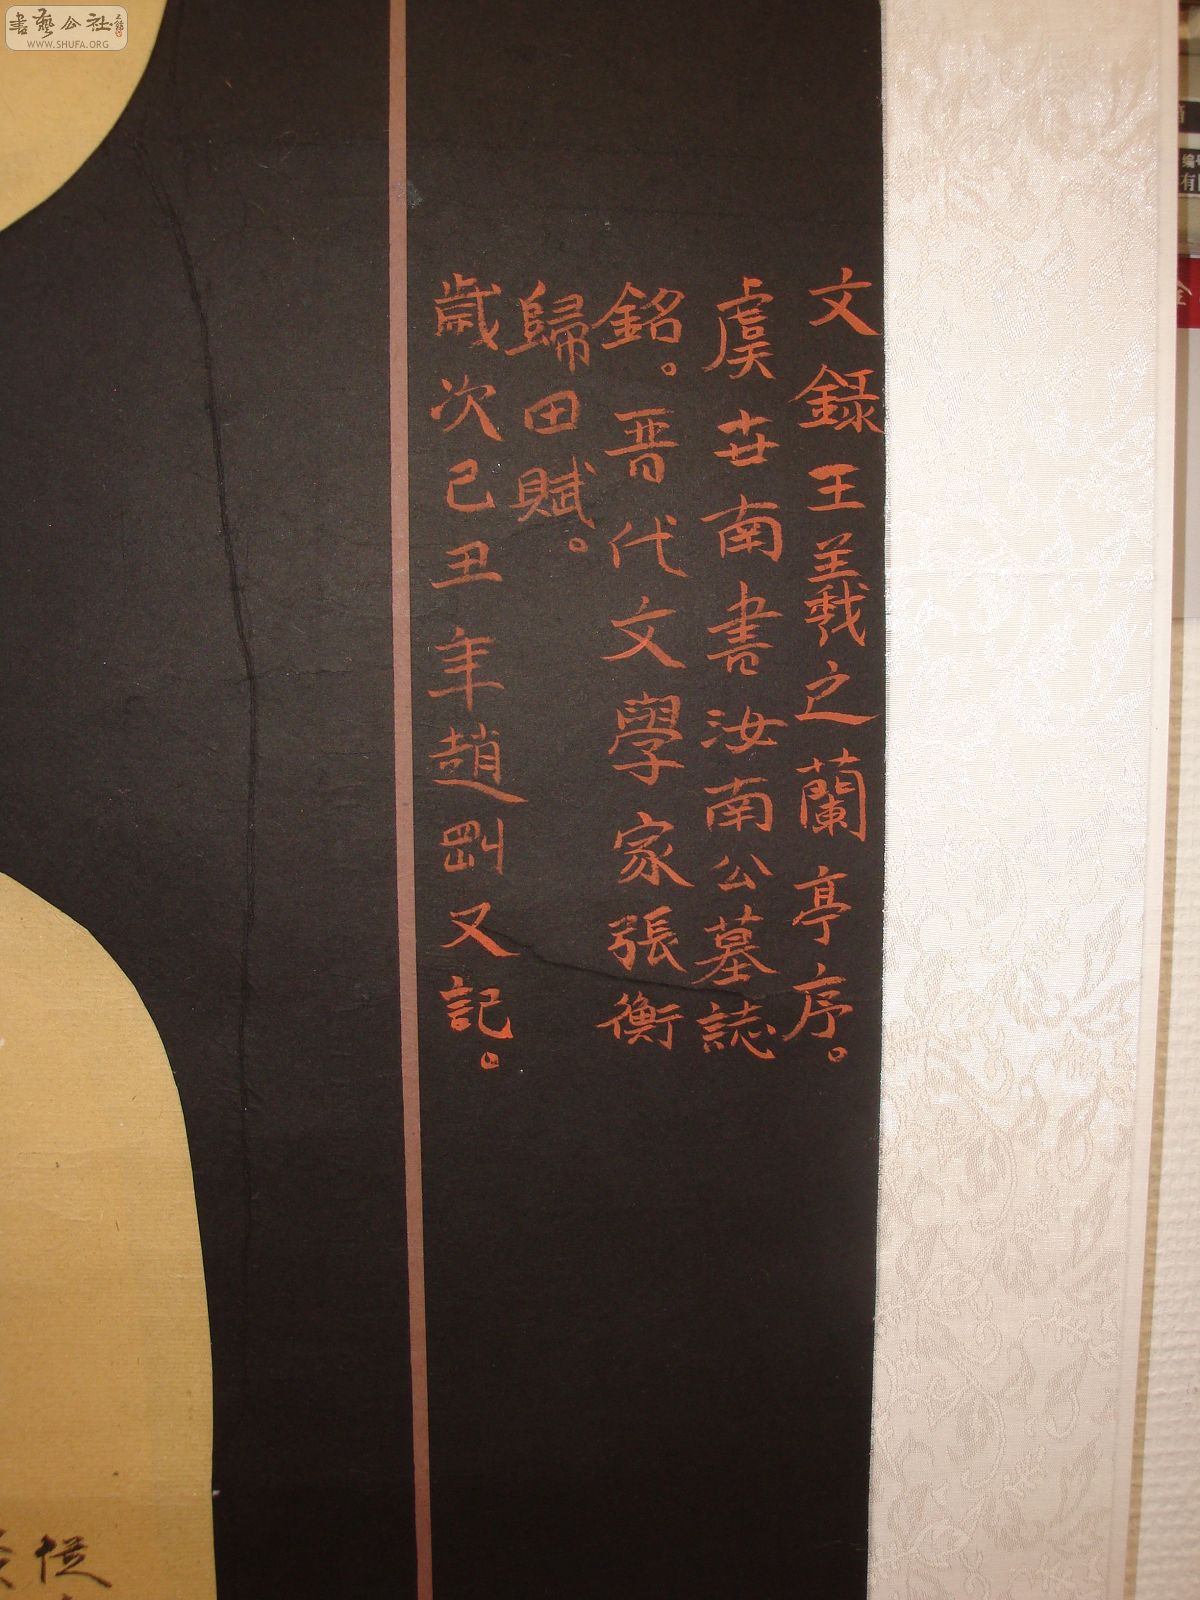 文錄王羲之蘭亭序。
虞世南書汝南公墓誌
銘。晋代文學家張衡
歸田賦。
歲次己丑年趙剛又記。
書藝公社
WWW.SHUFA.ORG